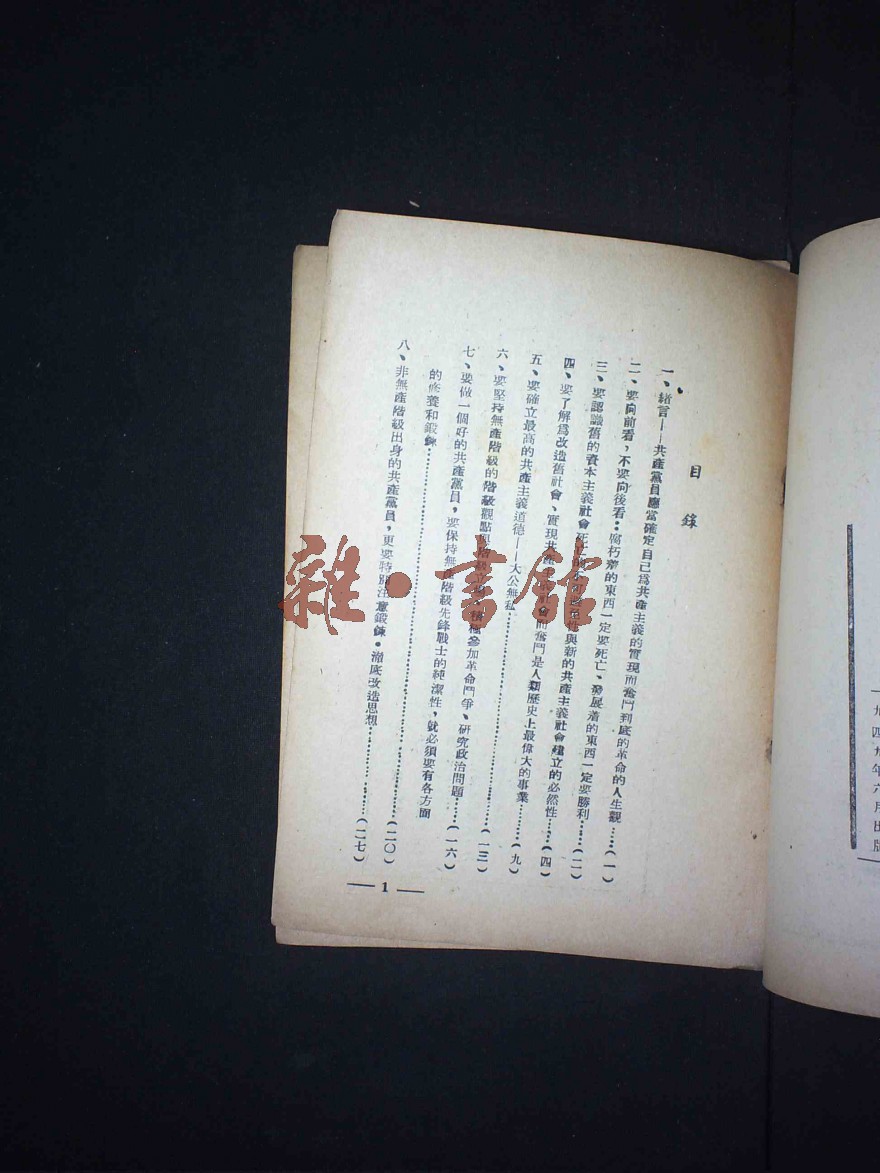 九四九年六月出版
目錄
一、緒言——共產黨員應當確定自己爲共產主義的實現而奮鬥到底的革命的人生觀……(一)
二、要向前看，不要向後看：腐朽着的東西一定要死亡、發展着的東西一定要勝利……(二)
三、要認識舊的資本主義社會死亡的不可避免性與新的共產主義社會建立的必然性……(四)
四、要了解爲改造舊社會、實現共產主義社會而奮鬥是人類歷史上最偉大的事業……(九)
五、要確立最高的共產主義道德——大公無私……(一三)
六、要堅持無產階級的階級觀點與階級立場、積極參加革命鬥爭、研究政治問題……(一六)
七、要做一個好的共產黨員，要保持無產階級先鋒戰士的純潔性，就必須要有各方面
的修養和鍛鍊……(二〇)
八、非無產階級出身的共產黨員，更要特別注意鍛鍊，澈底改造思想……(二七)
— 1 —
雜·書館